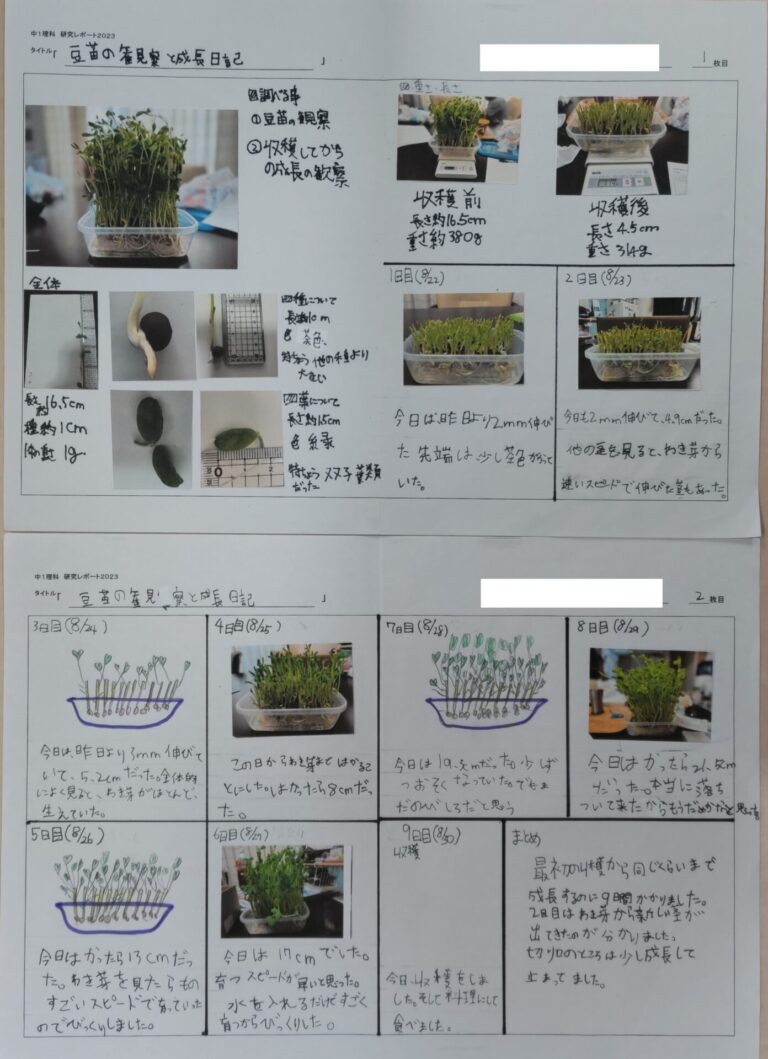 中1理科 研究レポート2023
タイトル「 豆苗の観察と成長日記 」
1 枚目
四調べる事
①豆苗の観察
②収穫してから
の成長の観察
四重さ・長さ
収穫前
長さ約16.5cm
重さ約380g
収穫後
長さ4.5cm
重さ314g
全体
長さ約16.5cm
種約1cm
重さ1g
四種について
長さ約1cm
色 茶色
特ちょう 他の種より
大きい
四葉について
長さ約1.5cm
色 緑
特ちょう 双子葉類
だった
1日目(8/22)
今日は昨日より2mm伸び
た 先端は少し茶色がかって
いた。
2日目(8/23)
今日も2mm伸びて、4.9cmだった。
他の豆苗を見ると、わき芽から
速いスピードで伸びた茎もあった。
中1理科 研究レポート2023
タイトル「 豆苗の観察と成長日記 」
2 枚目
3日目(8/24)
今日は、昨日より3mm伸びて
いて、5.2cmだった。全体的
によく見ると、わき芽がほとんど、
生えていた。
4日目(8/25)
この日からわき芽まではかるこ
とにした。はかったら8cmだっ
た。
7日目(8/28)
今日は19.5cmだった。少しず
つおそくなっていた。でもま
だのびしろだと思う
8日目(8/29)
今日はかったら21.5cm
だった。本当に落ち
ついて来たからもうだめかなと思った
5日目(8/26)
今日はかったら13cmだっ
た。わき芽を見たらもの
すごいスピードで育っていた
のでびっくりしました。
6日目(8/27)
今日は17cmでした。
育つスピードが早いと思った。
水を入れるだけですごく
育つからびっくりした。
9日目(8/30)
収穫
今日、収穫をしま
した。そして料理にして
食べました。
まとめ
最初の収穫から同じくらいまで
成長するのに9日間かかりました。
2日目はわき芽から新しい茎が
出てきたのが分かりました。
切り口のところは少し成長して
止まってました。